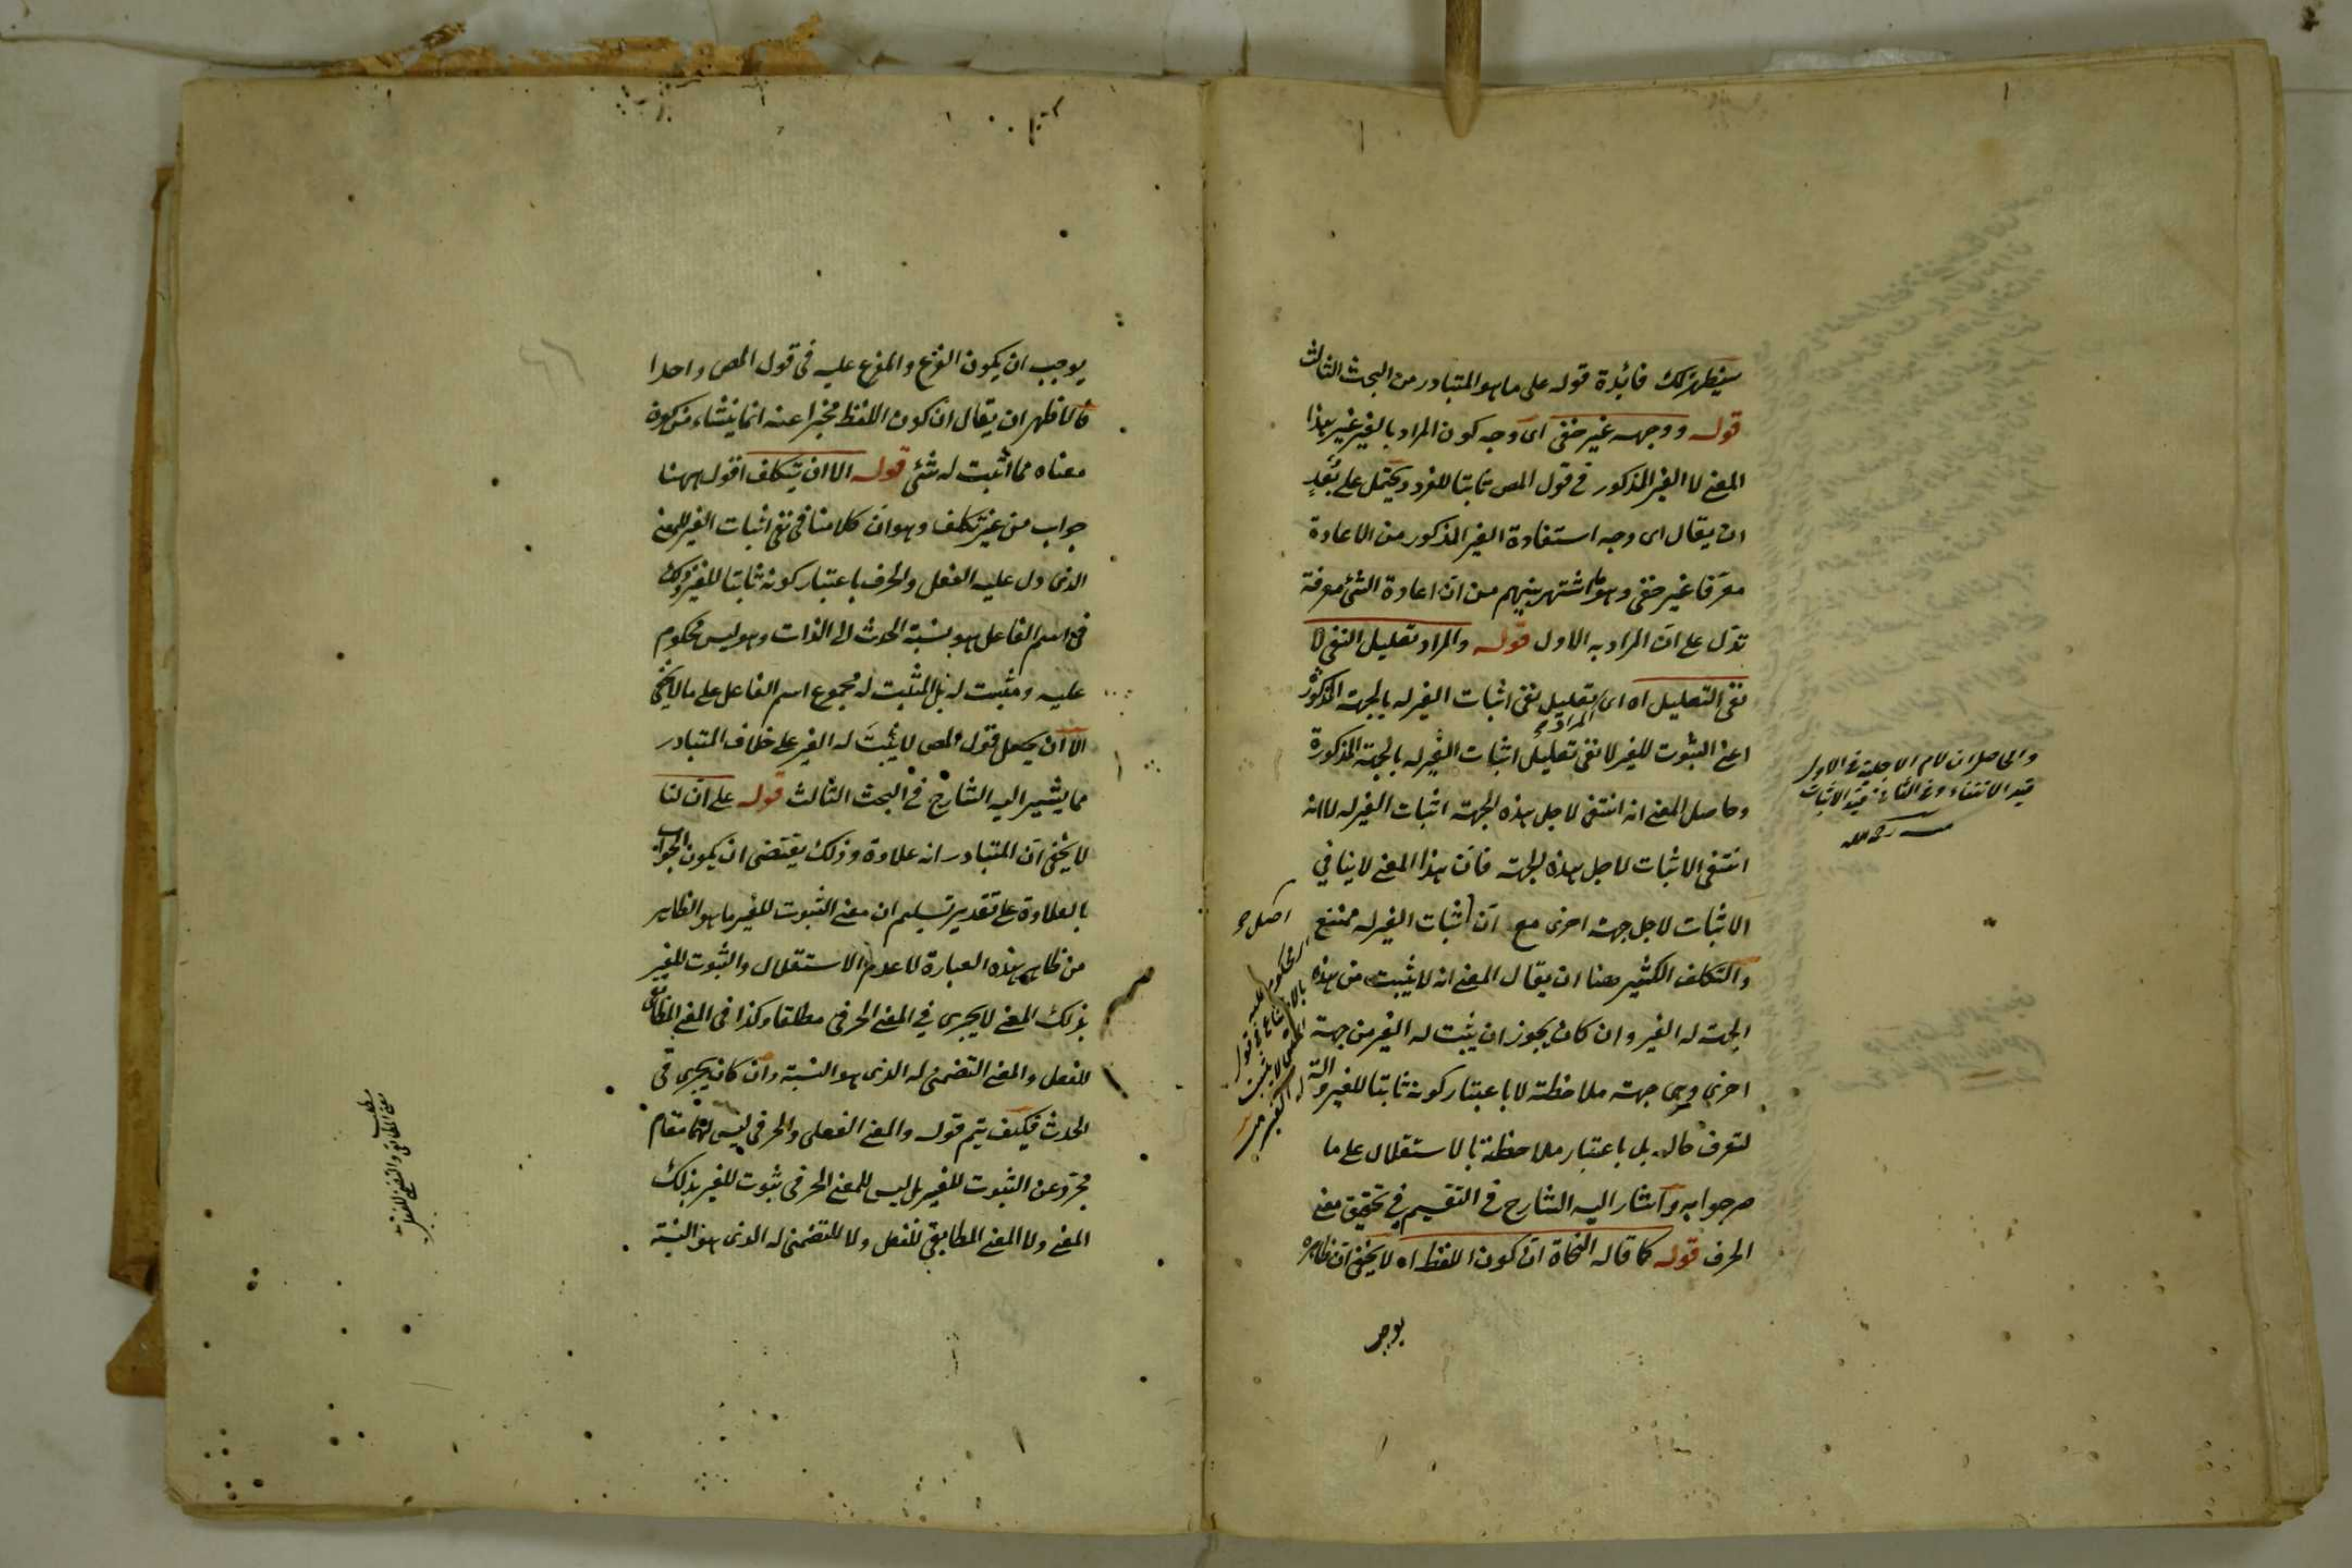 سيظهر لك فائدة قوله على ما هو المتبادر من البحث الثالث
قوله ووجهه غير خفي اى وجه كون المراد بالغير غير هذا
المعنى لا الغير المذكور في قول المص ثابتا للغير ويحتمل على بُعدٍ
ان يقال اى وجه استفادة الغير المذكور من الاعادة
معرّفا غير خفي وهو ما اشتهر بينهم من انّ اعادة الشئ معرفة
تدل على انّ المراد به الاول قوله والمراد تعليل النفى لا
نفى التعليل اه اى المراد تعليل نفى اثبات الغير له بالجهة المذكورة
اعنى الثبوت للغير لا نفى تعليل اثبات الغير له بالجهة المذكورة
وحاصل المعنى انه انتفى لاجل هذه الجهة اثبات الغير له لا انه
انتفى الاثبات لاجل هذه الجهة فانّ هذا المعنى لا ينافي
الاثبات لاجل جهة اخرى مع انّ اثبات الغير له ممتنع
والتكلف الكثير هنا ان يقال المعنى انه لا يثبت من هذه
الجهة له الغير وان كان يجوز ان يثبت له الغير من جهة
اخرى وهى جهة ملاحظته لا باعتبار كونه ثابتا للغير و
لتعرف حاله بل باعتبار ملاحظته بالاستقلال على ما
صرحوا به واشار اليه الشارح في التقسيم في تحقيق معنى
الحرف قوله كما قاله النحاة انّ كون اللفظ اه لا يخفى ان ظاهره
يوجب
والحاصل ان لام الاجلية في الاول
قيد الانتفاء وفي الثاني قيد الاثبات
رحمه الله
يوجب ان يكون الفرع والمفرع عليه في قول المص واحدا
فالاظهر ان يقال ان كون اللفظ مخبرا عنه انما ينشاء من كون
معناه مما اثبت له شئ قوله الا ان يتكلف اقول ههنا
جواب من غير تكلف وهو انّ كلامنا في نفى اثبات الغير للمعنى
الذى دل عليه الفعل والحرف باعتبار كونه ثابتا للغير وذلك
في اسم الفاعل هو نسبة الحدث الى الذات وهو ليس محكوم
عليه ومثبت له بل المثبت له مجموع اسم الفاعل على ما لا يخفى
الا ان يحمل قول المص لا يثبت له الغير على خلاف المتبادر
مما يشير اليه الشارح في البحث الثالث قوله على ان لنا
لا يخفى ان المتبادر انه علاوة وذلك يقتضى ان يكون الجواب
بالعلاوة على تقدير تسليم ان معنى الثبوت للغير ما هو الظاهر
من ظاهر هذه العبارة لا عدم الاستقلال والثبوت للغير
بذلك المعنى لا يجرى في المعنى الحرفى مطلقا وكذا في المعنى المطابقى
للفعل والمعنى التضمنى له الذى هو النسبة وان كان يجرى في
الحدث فكيف يتم قوله والمعنى الفعلى والحرفى ليس لهما مقام
مجرّد عن الثبوت للغير بل ليس للمعنى الحرفى ثبوت للغير بذلك
المعنى ولا المعنى المطابقي للفعل ولا للتضمنى له الذى هو النسبة